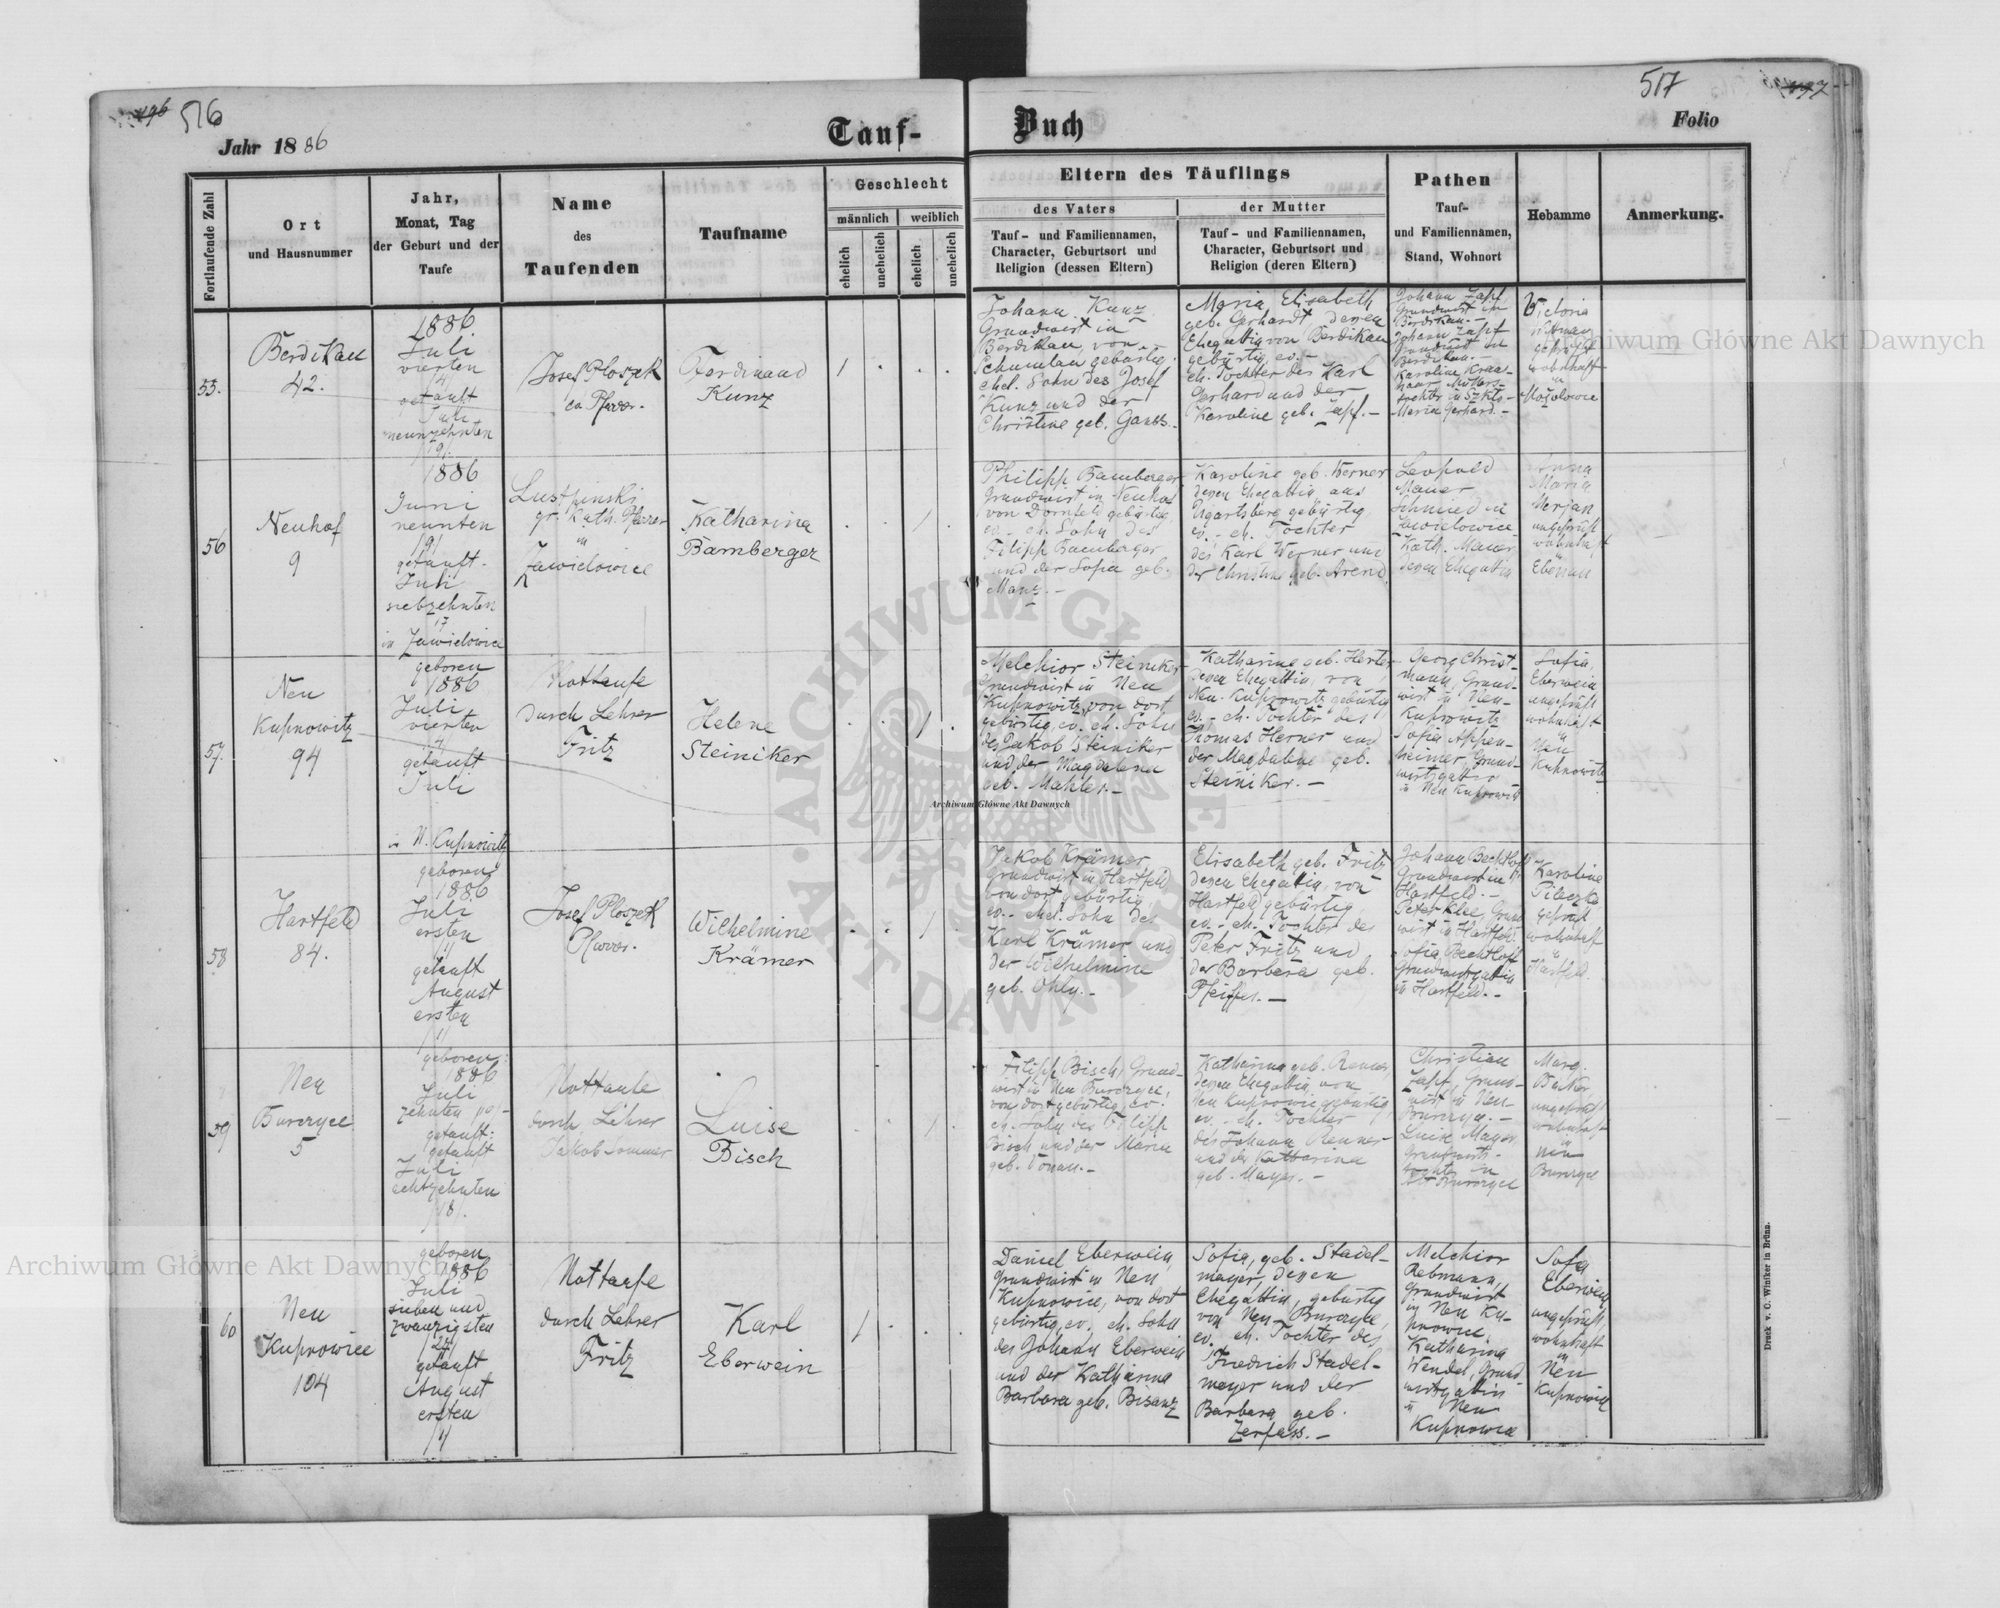 516
Jahr 1886
Tauf-
Fortlaufende Zahl
Ort
und Hausnummer
Jahr,
Monat, Tag
der Geburt und der
Taufe
Name
des
Taufenden
Taufname
Geschlecht
männlich
weiblich
ehelich
unehelich
ehelich
unehelich
55.
Berdikau
42.
1886.
Juli
vierten
/4/
getauft
Juli
neunzehnten
/19/.
Josef Ploszek
ev. Pfarrer.
Ferdinand
Kunz
1
56
Neuhof
9
1886
Juni
neunten
/9/
getauft.
Juli
siebzehnten
17
in Zawidowice
gr. kath. Pfarrer
in
Zawidowice
Katharina
Bamberger
1
57.
Neu
Kupnowitz
94
geboren
1886
Juli
vierten
getauft
Juli
in N. Kupnowitz
Nottaufe
durch Lehrer
Fritz
Helene
Steiniker
1
58
Hartfeld
84.
geboren
1886
Juli
ersten
/1/
getauft
August
ersten
/1/
Josef Ploszek
Pfarrer.
Wilhelmine
Krämer
1
59
Neu
Burczyce
5
geboren:
1886
Juli
zehnten /10/-
getauft:
getauft
Juli
achtzehnten
/18/.
Nottaufe
durch Lehrer
Jakob Sommer
Luise
Bisch
1
60
Neu
Kupnowice
104
geboren
1886
Juli
sieben und
zwanzigsten
/27/
getauft
August
ersten
/1/
Nottaufe
durch Lehrer
Fritz
Karl
Eberwein
1
517
Buch
Folio
Eltern des Täuflings
des Vaters
Tauf- und Familiennamen,
Character, Geburtsort und
Religion (dessen Eltern)
der Mutter
Tauf- und Familiennamen,
Character, Geburtsort und
Religion (deren Eltern)
Pathen
Tauf-
und Familiennamen,
Stand, Wohnort
Hebamme
Anmerkung.
Johann Kunz
Grundwirt in
Berdikau, von
Schumlau gebürtig.
ehel. Sohn des Josef
Kunz und der
Christine geb. Ganss.-
Maria Elisabeth
geb. Gerhardt, dessen
Ehegattin von Berdikau
gebürtig, ev.-
eh. Tochter des Karl
Gerhard und der
Karoline geb. Zapf.-
Johann Zapf
Grundwirt in
Berdikau.-
Johann Zapf
Grundwirt in
Berdikau.-
Karoline
Maria Gerhard.-
Victoria
geprüft
wohnhaft
in
Philipp Bamberger
Grundwirt in Neuhof
von Dornfeld gebürtig,
ev.- eh. Sohn des
Filipp Bamberger
und der Sofia geb.
Manz.-
Karoline geb. Werner
dessen Ehegattin aus
Ugartsberg gebürtig
ev.- eh. Tochter
des Karl Werner und
der Christine geb. Arend
Leopold
Mauer
Schmied in
Zawidowice
Kath. Mauer
dessen Ehegattin
Anna
Maria
Merjan
ungeprüft
wohnhaft
in
Ebenau
Melchior Steiniker
Grundwirt in Neu
Kupnowitz, von dort
gebürtig, ev. eh. Sohn
des Jakob Steiniker
und der Magdalena
geb. Mahler.-
Katharine geb. Herter
dessen Ehegattin, von
Neu-Kupnowitz gebürtig
ev.- eh. Tochter des
Thomas Herner und
der Magdalene geb.
Steiniker.-
Georg Christ-
mann, Grund-
wirt in Neu-
Kupnowitz
Sofia Appen-
heimer, Grund-
wirtsgattin
in Neu Kupnowitz
Sofia
Eberwein
ungeprüft
wohnhaft
in
Neu
Kupnowitz
Jakob Krämer
Grundwirt in Hartfeld,
von dort gebürtig,
ev.- ehel. Sohn des
Karl Krämer und
der Wilhelmine
geb. Ohly.-
Elisabeth geb. Fritz
dessen Ehegattin, von
Hartfeld gebürtig
ev.- eh. Tochter des
Peter Fritz und
der Barbara geb.
Pfeiffer.-
Johann Bechtloff
Grundwirt in
Hartfeld.-
Peter Klee, Grund
wirt in Hartfeld.
Sofia Bechtloff
Grundwirtsgattin
in Hartfeld.-
Karoline
geprüft
wohnhaft
in
Hartfeld.
Filipp Bisch, Grund-
wirt in Neu Burczyce,
von dort gebürtig, ev.
eh. Sohn des Filipp
Bisch und der Maria
geb. Donau.-
Katharina geb. Renner,
dessen Ehegattin von
Neu Kupnowice gebürtig,
ev.- eh. Tochter
des Johann Renner
und der Katharina
geb. Mayer.-
Christian
Zapf, Grund-
wirt in Neu
Burczyce.-
Luise Mayer
Grundwirts-
tochter in
Alt Burczyce
Marg.
Becker
ungeprüft
wohnhaft
in
Neu
Burczyce
Daniel Eberwein,
Grundwirt in Neu
Kupnowice, von dort
gebürtig, ev. eh. Sohn
des Johann Eberwein
und der Katharina
Barbara geb. Bisanz
Sofia, geb. Stadel-
mayer, dessen
Ehegattin, gebürtig
von Neu Burczyce,
ev. eh. Tochter des
Friedrich Stadel-
mayer und der
Barbara geb.
Zerfass.-
Melchior
Rebmann,
Grundwirt
in Neu Ku-
pnowice.
Katharina
Wendel, Grund-
wirtsgattin
in Neu
Kupnowice
Sofia
Eberwein
ungeprüft,
wohnhaft
in
Neu
Kupnowice
Druck v. C. Winiker in Brünn.
Archiwum Główne Akt Dawnych
Archiwum Główne Akt Dawnych
Archiwum Główne Akt Dawnych
ARCHIWUM GŁÓWNE
AKT DAWNYCH